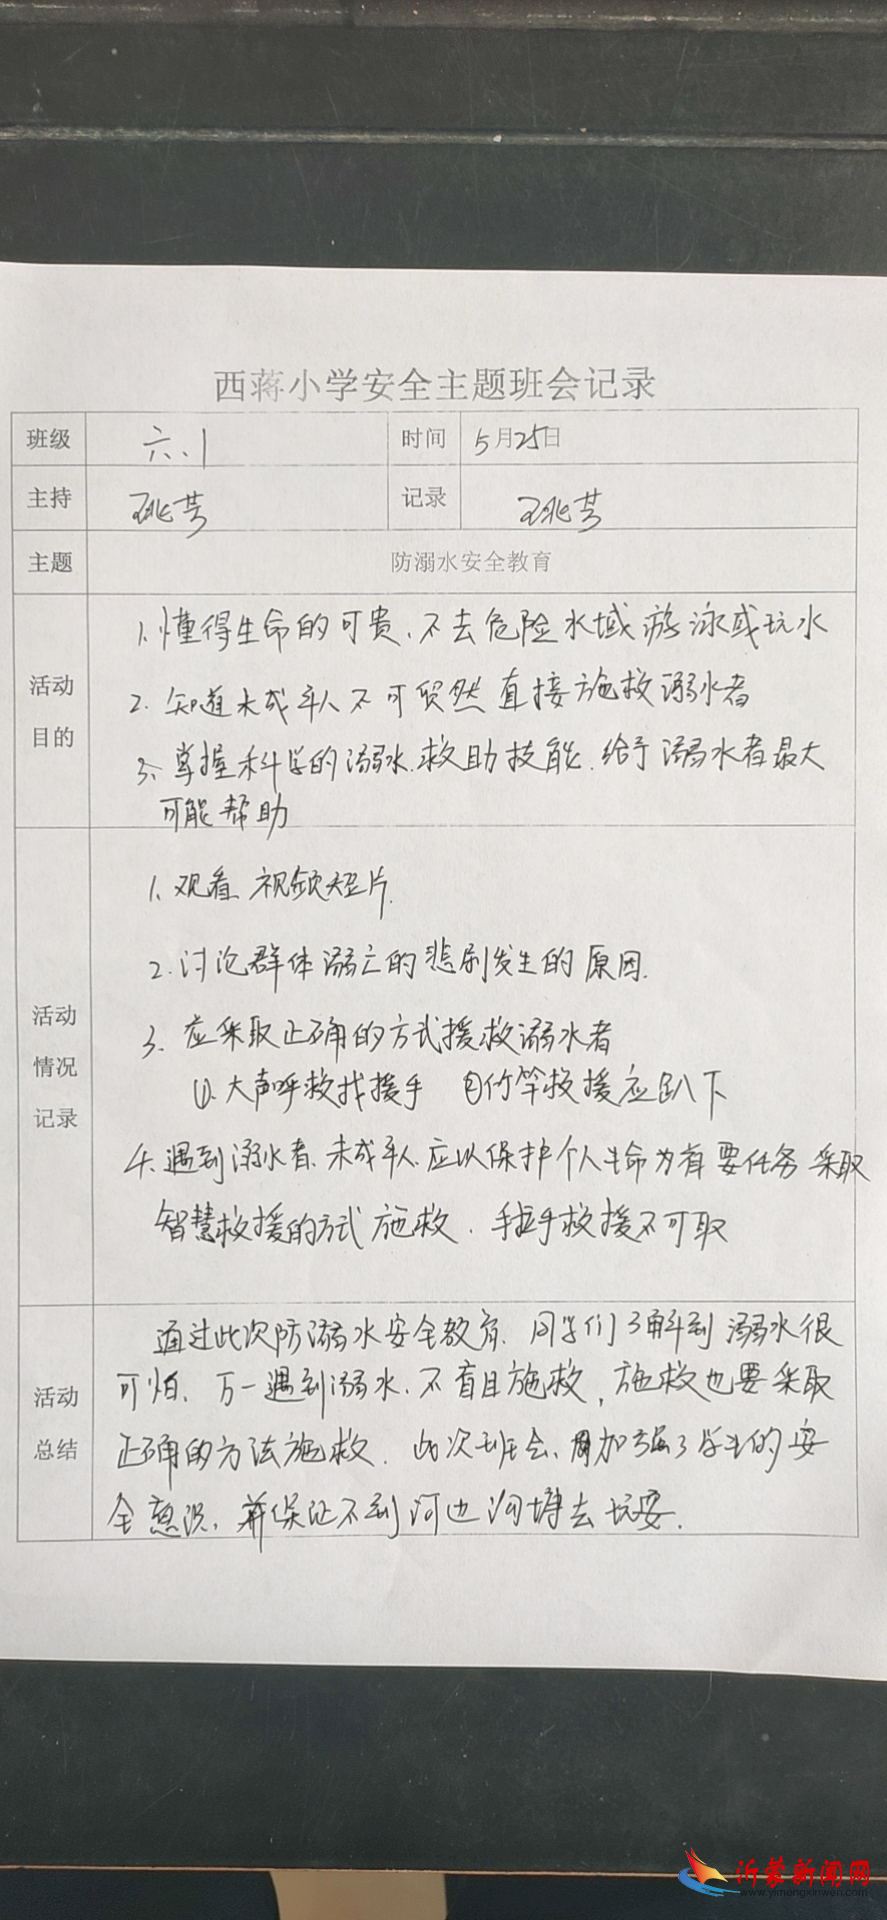 西蒋小学安全主题班会记录
班级 六.1 时间 5月25日
主持 记录
主题 防溺水安全教育
活动目的
1.懂得生命的可贵、不去危险水域游泳或玩水
2.知道未成年人不可贸然直接施救溺水者
3、掌握科学的溺水救助技能.给予溺水者最大
可能帮助
活动情况记录
1.观看视频短片.
2.讨论群体溺亡的悲剧发生的原因.
3、应采取正确的方式援救溺水者
①.大声呼救找援手 ②竹竿救援应趴下
4.遇到溺水者.未成年人.应以保护个人生命为首要任务采取
智慧救援的方式施救.手拉手救援不可取
活动总结
通过此次防溺水安全教育.同学们了解到溺水很
可怕.万一遇到溺水.不盲目施救,施救也要采取
正确的方法施救.此次班会、加强了学生的安
全意识,并保证不到河边沟塘去玩耍.
沂蒙新闻网
www.yimengxinwen.com